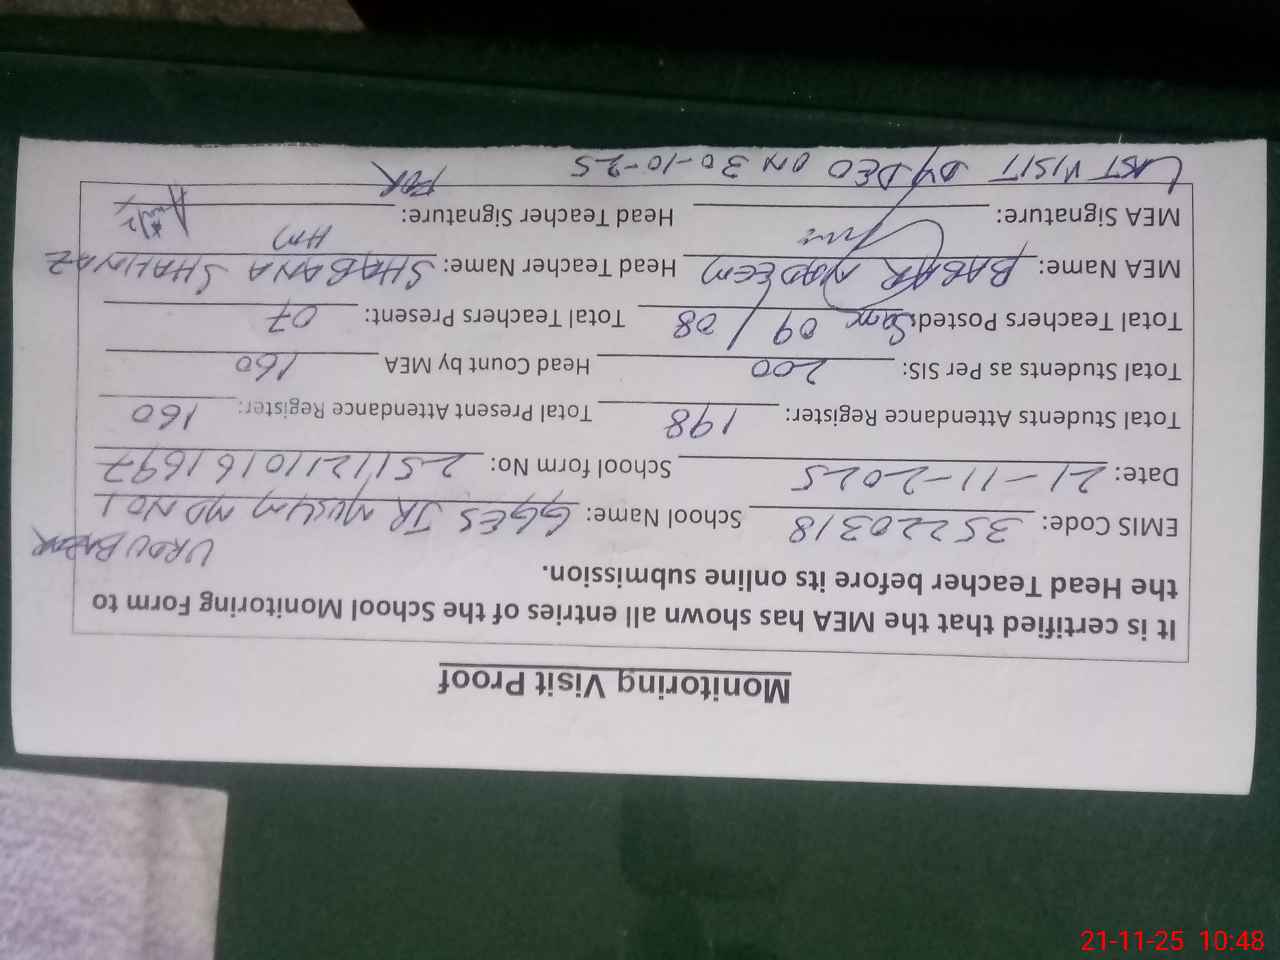 Monitoring Visit Proof
It is certified that the MEA has shown all entries of the School Monitoring Form to
the Head Teacher before its online submission.
URDU BAZAR
EMIS Code: 35220318 School Name: GGES JR MUSLIM MD NO 1
Date: 21-11-2025 School form No: 25112110161697
Total Students Attendance Register: 198 Total Present Attendant Register: 160
Total Students as Per SIS: 200 Head Count by MEA 160
Total Teachers Posted: Sanc 09 / 08 Total Teachers Present: 07
MEA Name: BABAR NADEEM Head Teacher Name: SHABANA SHAHNAZ
HM
MEA Signature: Head Teacher Signature:
FOR
LAST VISIT DY DEO ON 30-10-25
21-11-25 10:48